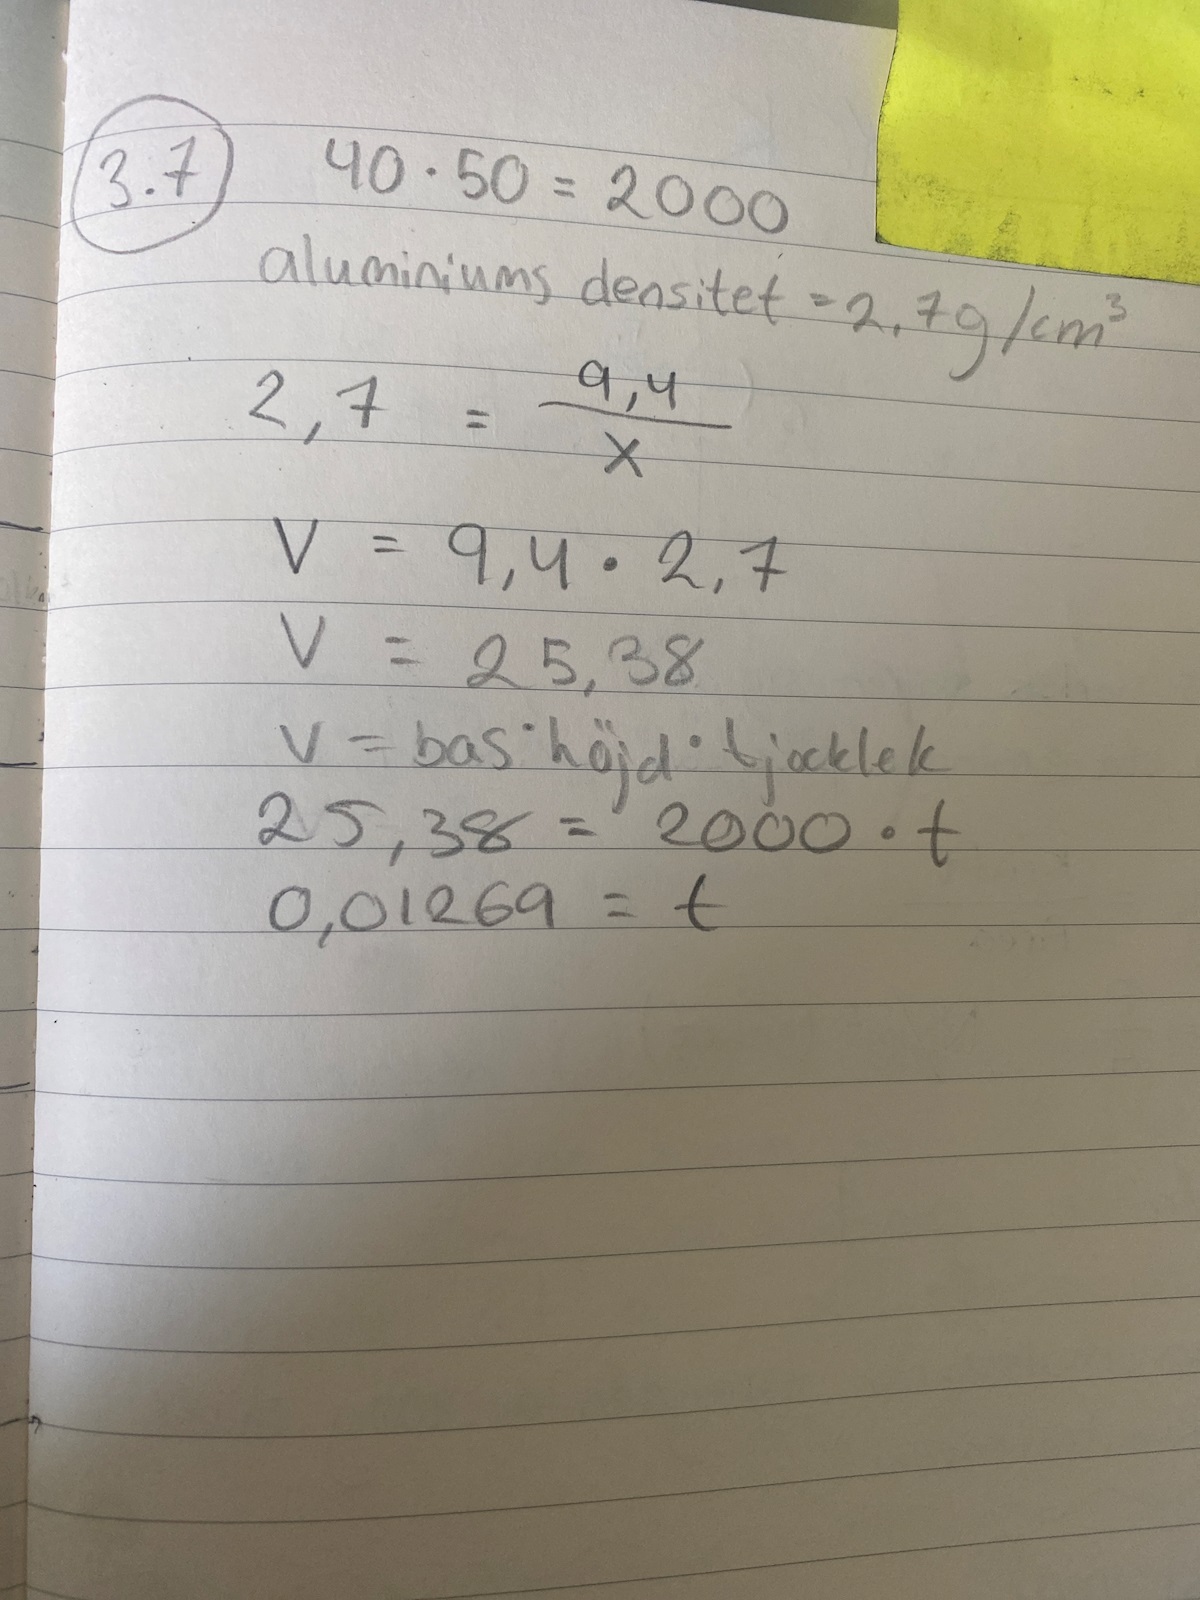 3.7 40 · 50 = 2000
aluminiums densitet = 2,7g/cm³
2,7 = 9,4 / x
V = 9,4 · 2,7
V = 25,38
V = bas · höjd · tjocklek
25,38 = 2000 · t
0,01269 = t